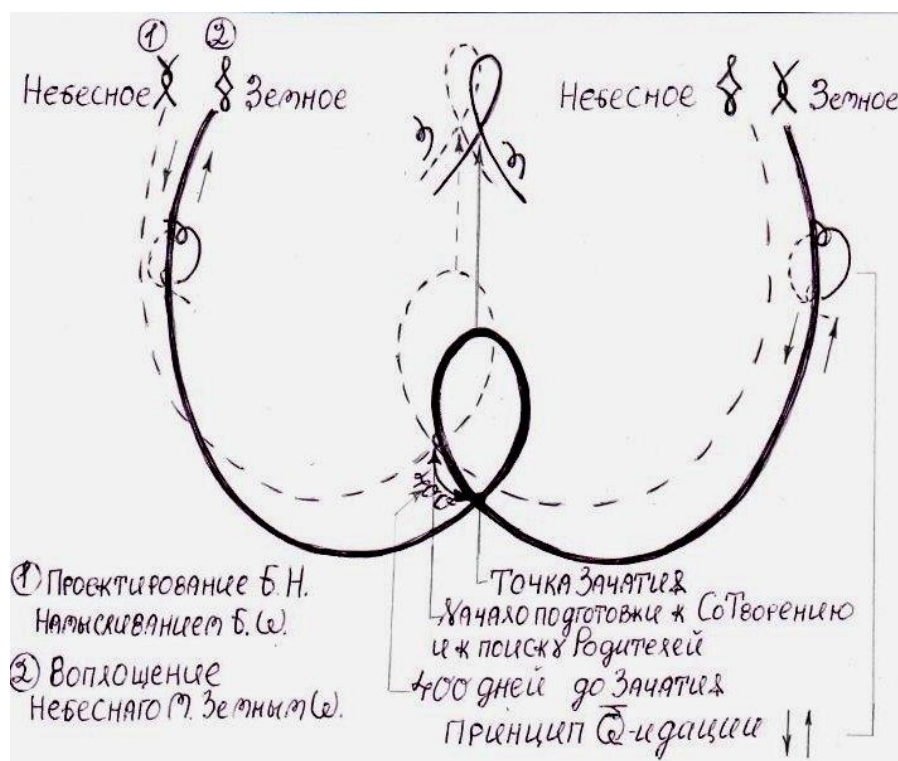 ① ②
Небесное Земное
Небесное Земное
① Проектирование Б.Н.
Намысливанием Б.Ѡ.
② Воплощение
Небеснаго М. Земным Ѡ.
Точка Зачатия
Начало подготовки к СоТворению
и к поиску Родителей
400 дней до Зачатия
Принцип -идации